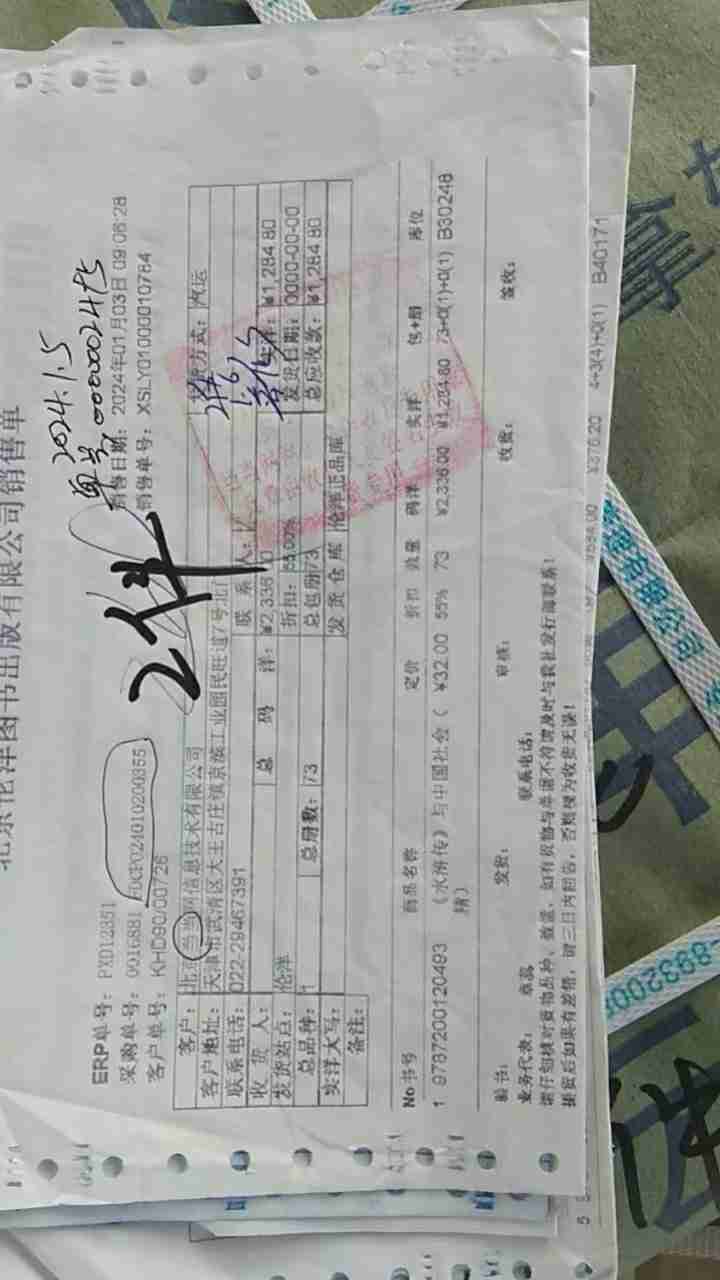 北京伦洋图书出版有限公司销售单
2024.1.5
ERP单号: PXD12351
采购单号: 0016881
销售日期: 2024年01月03日 09:06:28
客户单号: KHD90/00726
销售单号: XSLY01000010784
2件
客户: 北京当当网信息技术有限公司
发货方式: 汽运
客户地址: 天津市武清区大王古庄镇京滨工业园民旺道7号
联系电话: 022-29467391
联系人:
收货人:
总码洋: ¥2,336
实洋: ¥1,284.80
发货站点: 伦洋
折扣: 55.00%
发货日期: 0000-00-00
总品种: 1
总册数: 73
总包册 73
总应收款: ¥1,284.80
实洋大写:
发货仓库 伦洋正品库
备注:
No 书号 商品名称 定价 折扣 数量 码洋 实洋 包+册 库位
1 9787200120493 《水浒传》与中国社会( ¥32.00 55% 73 ¥2,336.00 ¥1,284.80 73+0(1)+0(1) B30248
精)
验书: 发货: 审核: 收货: 签收:
业务代表: 联系电话:
请仔细核对货物品种、数量, 如有货物与单据不符请及时与我社发行部联系!
接货后如果有差错, 请三日内回告, 否则视为收货无误!
¥376.20 4+3(4)+0(1) B40171